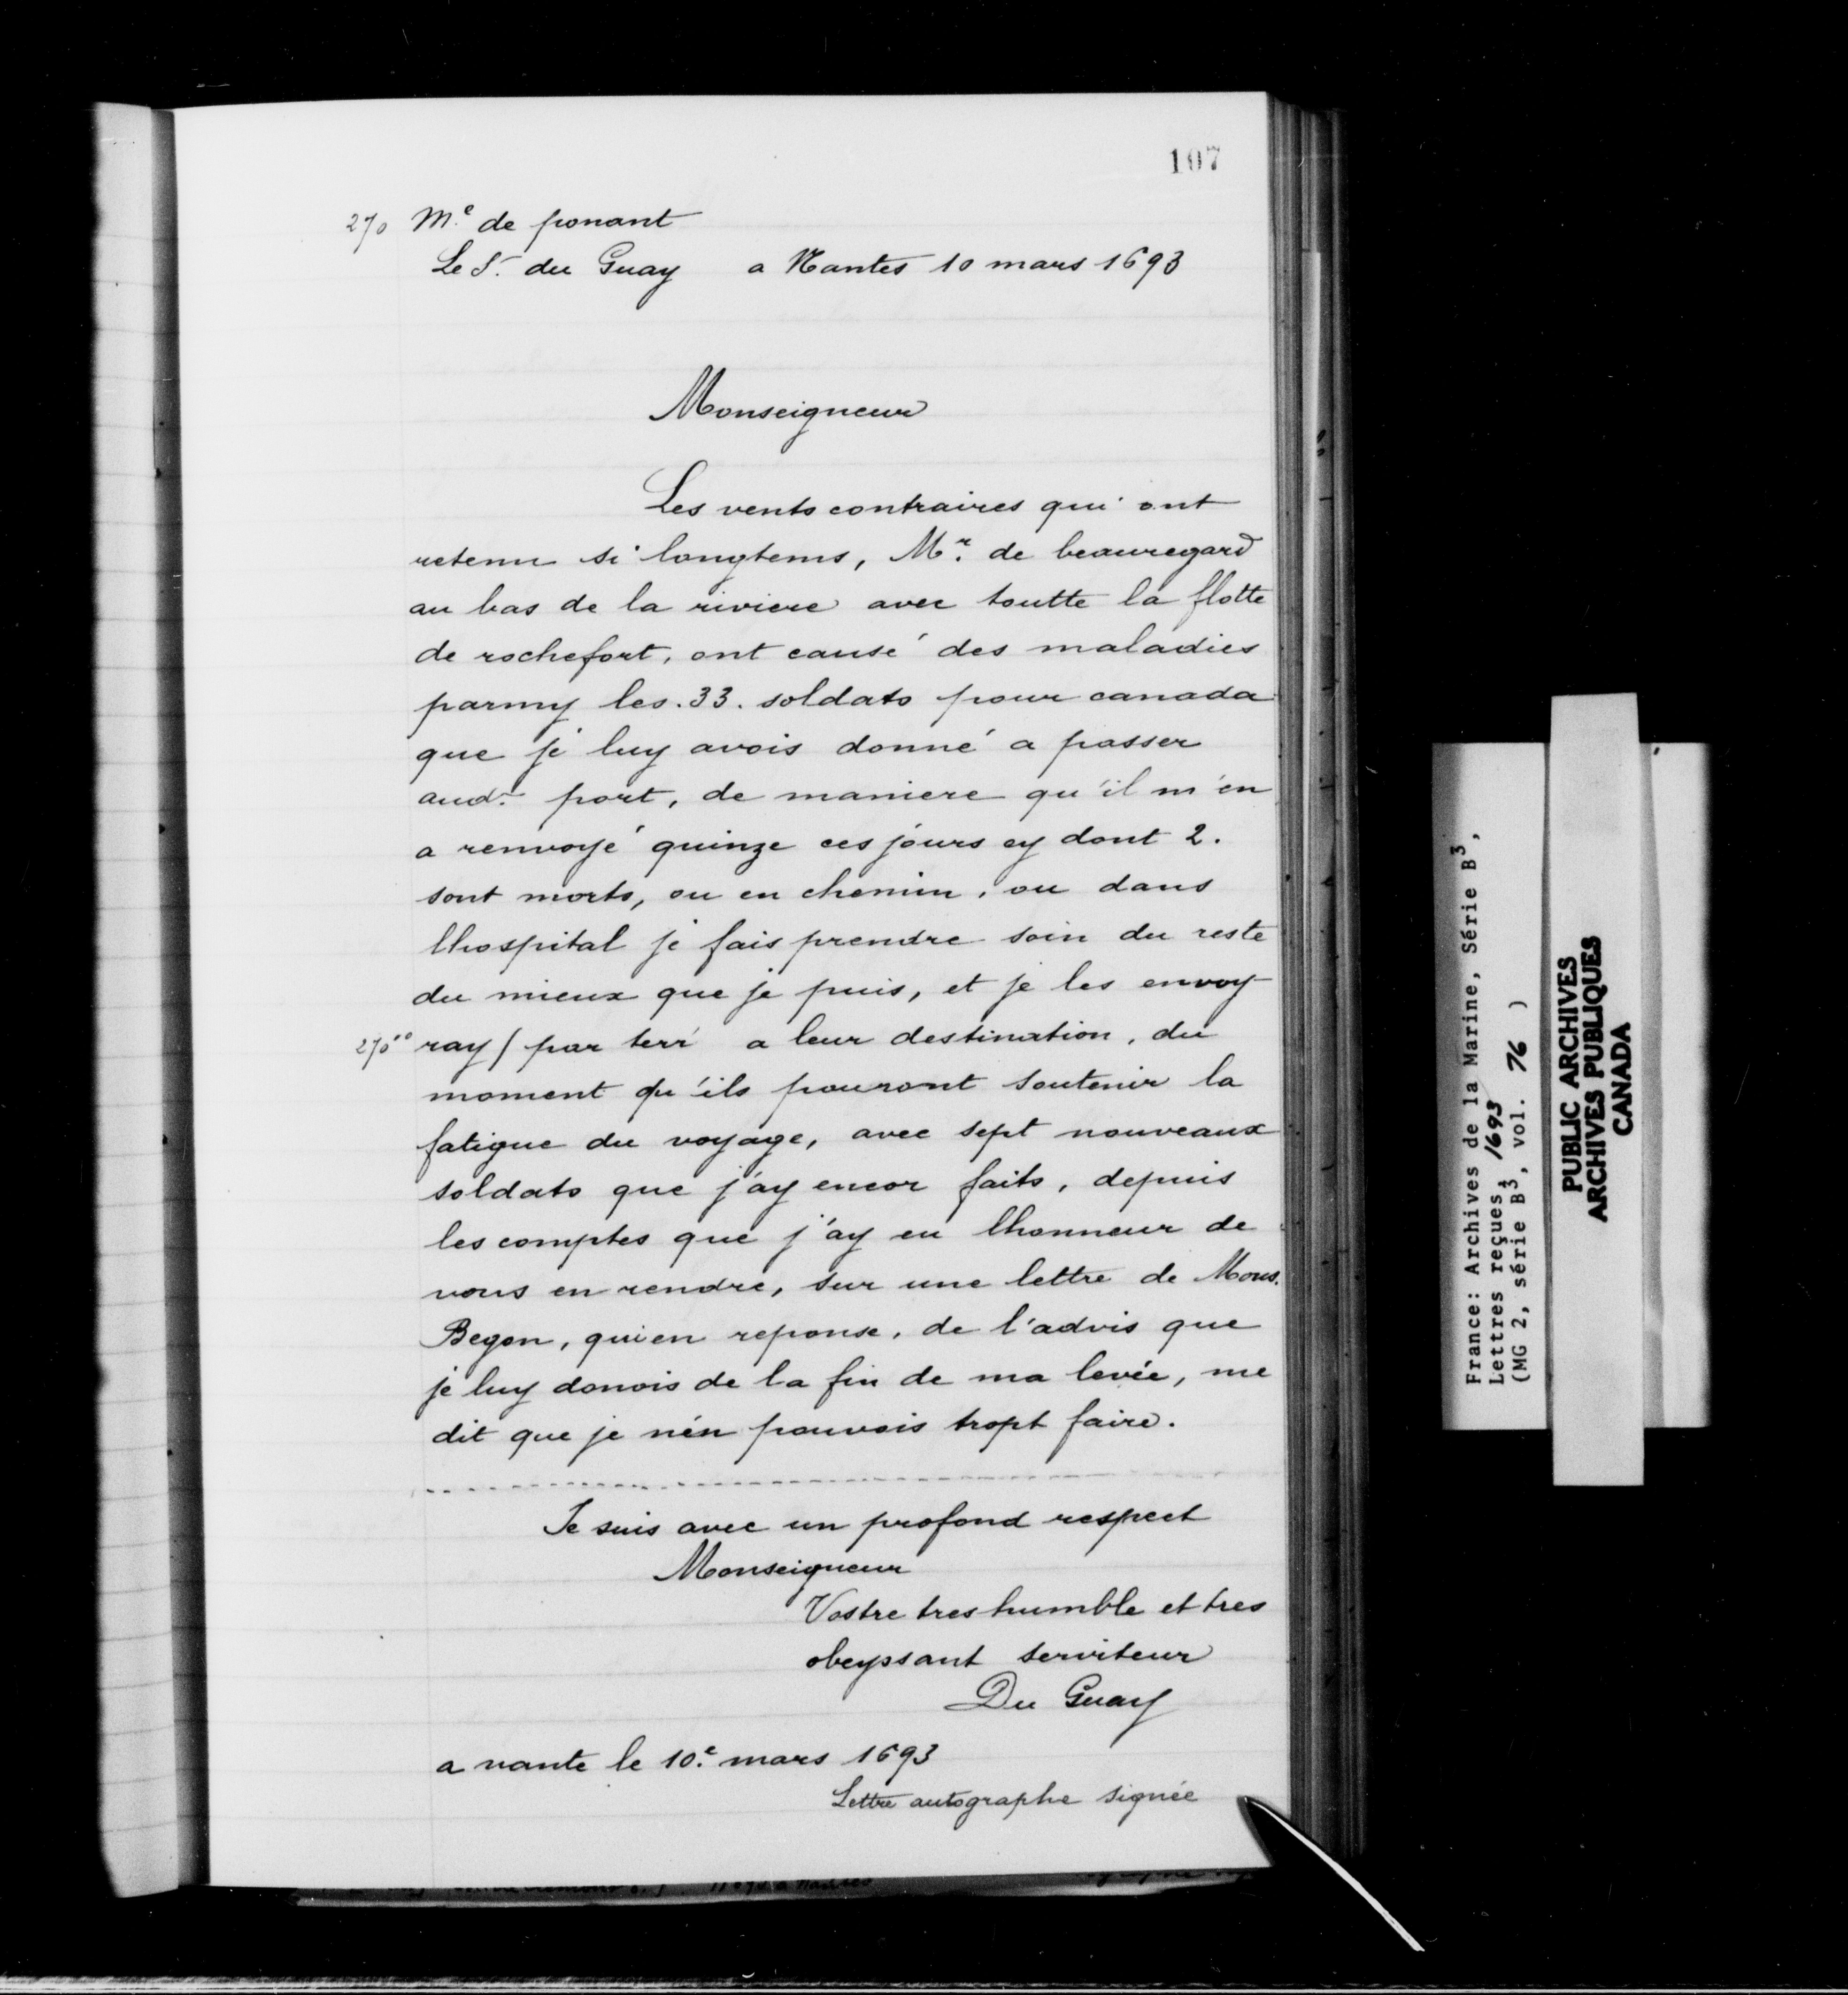 107
270 M.e de ponant
Le S.r du Guay a Nantes 10 mars 1693
Monseigneur
Les vents contraires qui ont
retenu si longtems, M.r de beauregard
au bas de la riviere avec toutte la flotte
de rochefort, ont causé des maladies
parmy les .33. soldats pour canada
que je luy avois donné a passer
aud.t port, de maniere qu'il m'en
a renvoyé quinze ces jours cy dont 2.
sont morts, ou en chemin, ou dans
lhospital je fais prendre soin du reste
du mieux que je puis, et je les envoy-
270vo ray / par terr a leur destination, du
moment qu'ils pouront soutenir la
fatigue du voyage, avec sept nouveaux
soldats que j'ay encor faits, depuis
les comptes que j'ay eu lhonneur de
vous en rendre, sur une lettre de Mons.
Begon, qui en reponse, de l'advis que
je luy donois de la fin de ma levée, me
dit que je n'en pouvois tropt faire.
Je suis avec un profond respect
Monseigneur
Vostre tres humble et tres
obeyssant serviteur
Du Guay
a nante le 10.e mars 1693
Lettre autographe signée
France: Archives de la Marine, Série B3,
Lettres reçues, 1693
(MG 2, série B3, vol. 76 )
PUBLIC ARCHIVES
ARCHIVES PUBLIQUES
CANADA